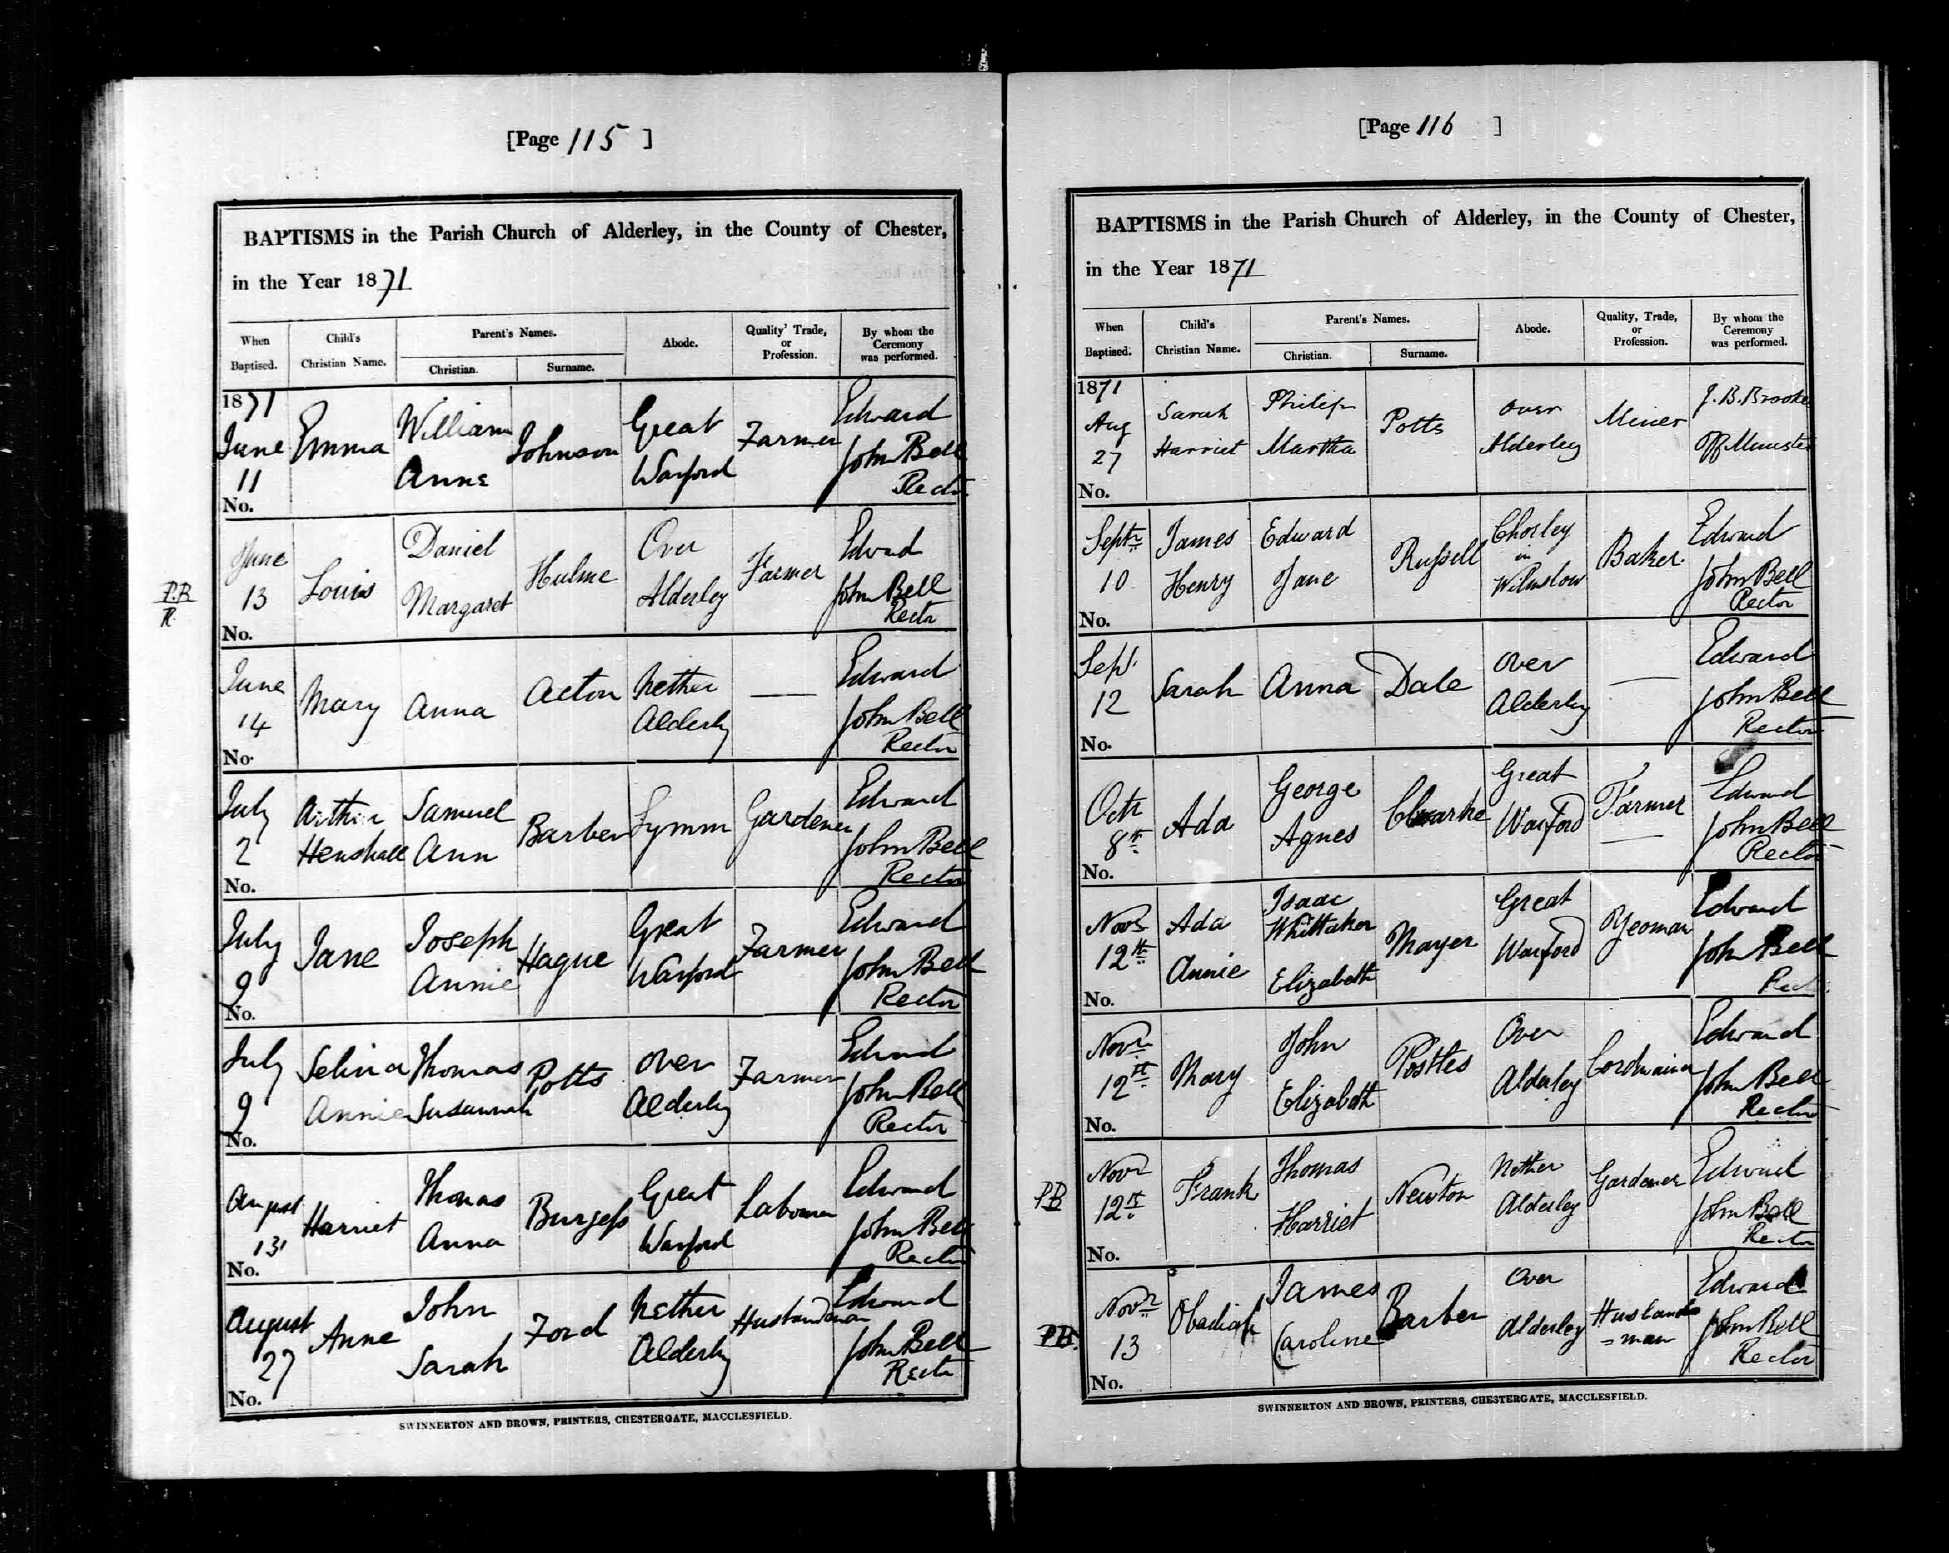 [Page 115 ]
BAPTISMS in the Parish Church of Alderley, in the County of Chester,
in the Year 1871
When Baptised. Child's Christian Name. Parent's Names. Christian. Surname. Abode. Quality' Trade, or Profession. By whom the Ceremony was performed.
1871 June 11 Emma William Anne Johnson Great Warford Farmer Edward John Bell Rector
No.
P.B R. June 13 Louis Daniel Margaret Hulme Over Alderley Farmer Edward John Bell Rector
No.
June 14 Mary Anna Acton Nether Alderley — Edward John Bell Rector
No.
July 2 Arthur Henshall Samuel Ann Barber Lymm Gardener Edward John Bell Rector
No.
July 9 Jane Joseph Annie Hague Great Warford Farmer Edward John Bell Rector
No.
July 9 Selina Annie Thomas Susannah Potts Over Alderley Farmer Edward John Bell Rector
No.
August 13 Harriet Thomas Anna Burgess Great Warford Labourer Edward John Bell Rector
No.
August 27 Anne John Sarah Ford Nether Alderley Husbandman Edward John Bell Rector
No.
SWINNERTON AND BROWN, PRINTERS, CHESTERGATE, MACCLESFIELD.
[Page 116 ]
BAPTISMS in the Parish Church of Alderley, in the County of Chester,
in the Year 1871
When Baptised. Child's Christian Name. Parent's Names. Christian. Surname. Abode. Quality, Trade, or Profession. By whom the Ceremony was performed.
1871 Aug 27 Sarah Harriet Philip Martha Potts Over Alderley Miner J. B. Brooke Off Minister
No.
Septr 10 James Henry Edward Jane Russell Chorley in Wilmslow Baker Edward John Bell Rector
No.
Sept. 12 Sarah Anna Dale Over Alderley — Edward John Bell Rector
No.
Octr 8th Ada George Agnes Clwarke Great Warford Farmer — Edward John Bell Rector
No.
Novr 12th Ada Annie Isaac Whittaker Elizabeth Mayer Great Warford Yeoman Edward John Bell Rector
No.
Novr 12th Mary John Elizabeth Postles Over Alderley Cordwainer Edward John Bell Rector
No.
P.B Novr 12th Frank Thomas Harriet Newton Nether Alderley Gardener Edward John Bell Rector
No.
P.B. Novr 13 Obadiah James Caroline Barber Over Alderley Husband =man Edward John Bell Rector
No.
SWINNERTON AND BROWN, PRINTERS, CHESTERGATE, MACCLESFIELD.